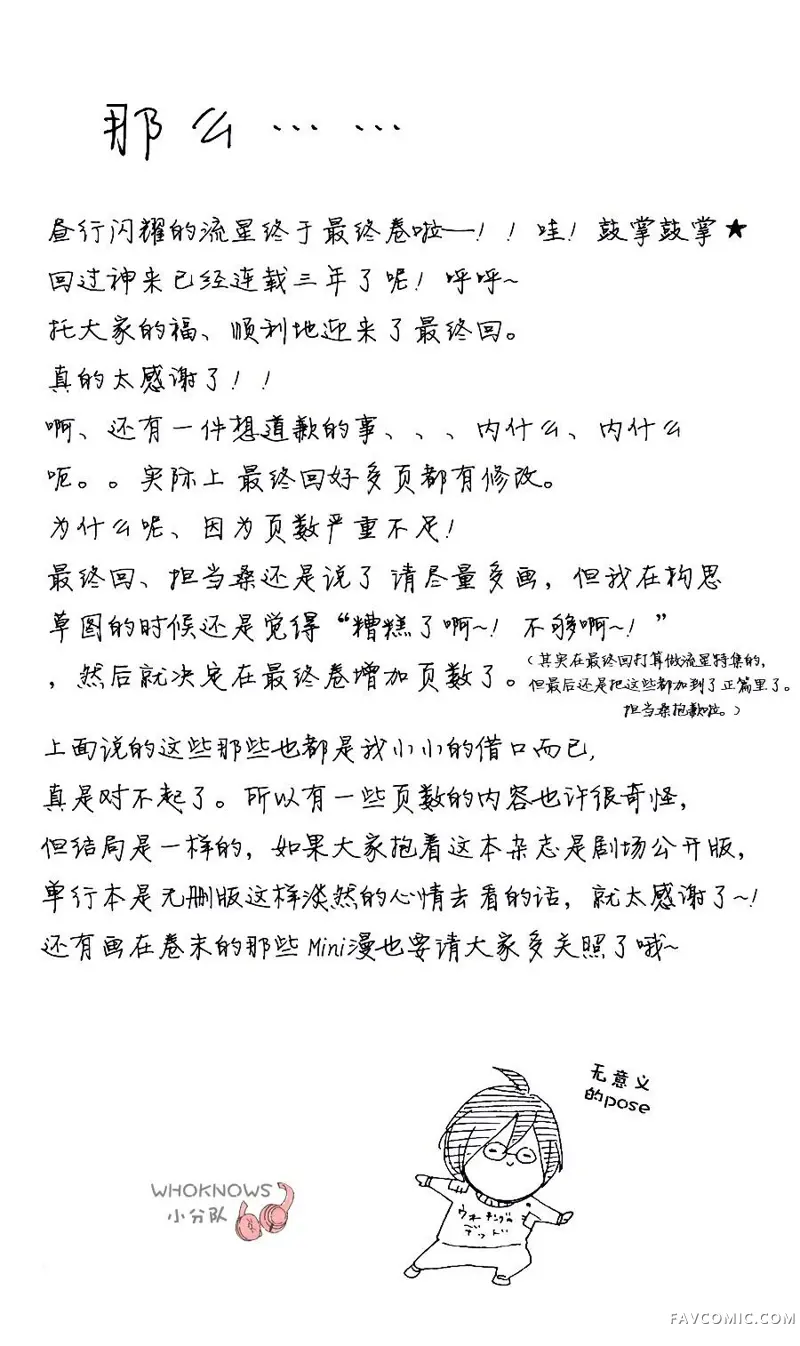 那么……
昼行闪耀的流星终于最终卷啦——！！哇！鼓掌鼓掌★
回过神来已经连载三年了呢！呼呼~
托大家的福、顺利地迎来了最终回。
真的太感谢了！！
啊、还有一件想道歉的事、、、内什么、内什么
呃。。实际上最终回好多页都有修改。
为什么呢、因为页数严重不足！
最终回、担当桑还是说了请尽量多画，但我在构思
草图的时候还是觉得“糟糕了啊~！不够啊~！”
，然后就决定在最终卷增加页数了。
（其实在最终回打算做流星特集的，
但最后还是把这些都加到了正篇里了。
担当桑抱歉啦。）
上面说的这些那些也都是我小小的借口而已，
真是对不起了。所以有一些页数的内容也许很奇怪，
但结局是一样的，如果大家抱着这本杂志是剧场公开版，
单行本是无删版这样淡然的心情去看的话，就太感谢了~！
还有画在卷末的那些Mini漫也要请大家多关照了哦~
无意义
的pose
WHOKNOWS
小分队
ウォーキングの
デッド
FAVCOMIC.COM